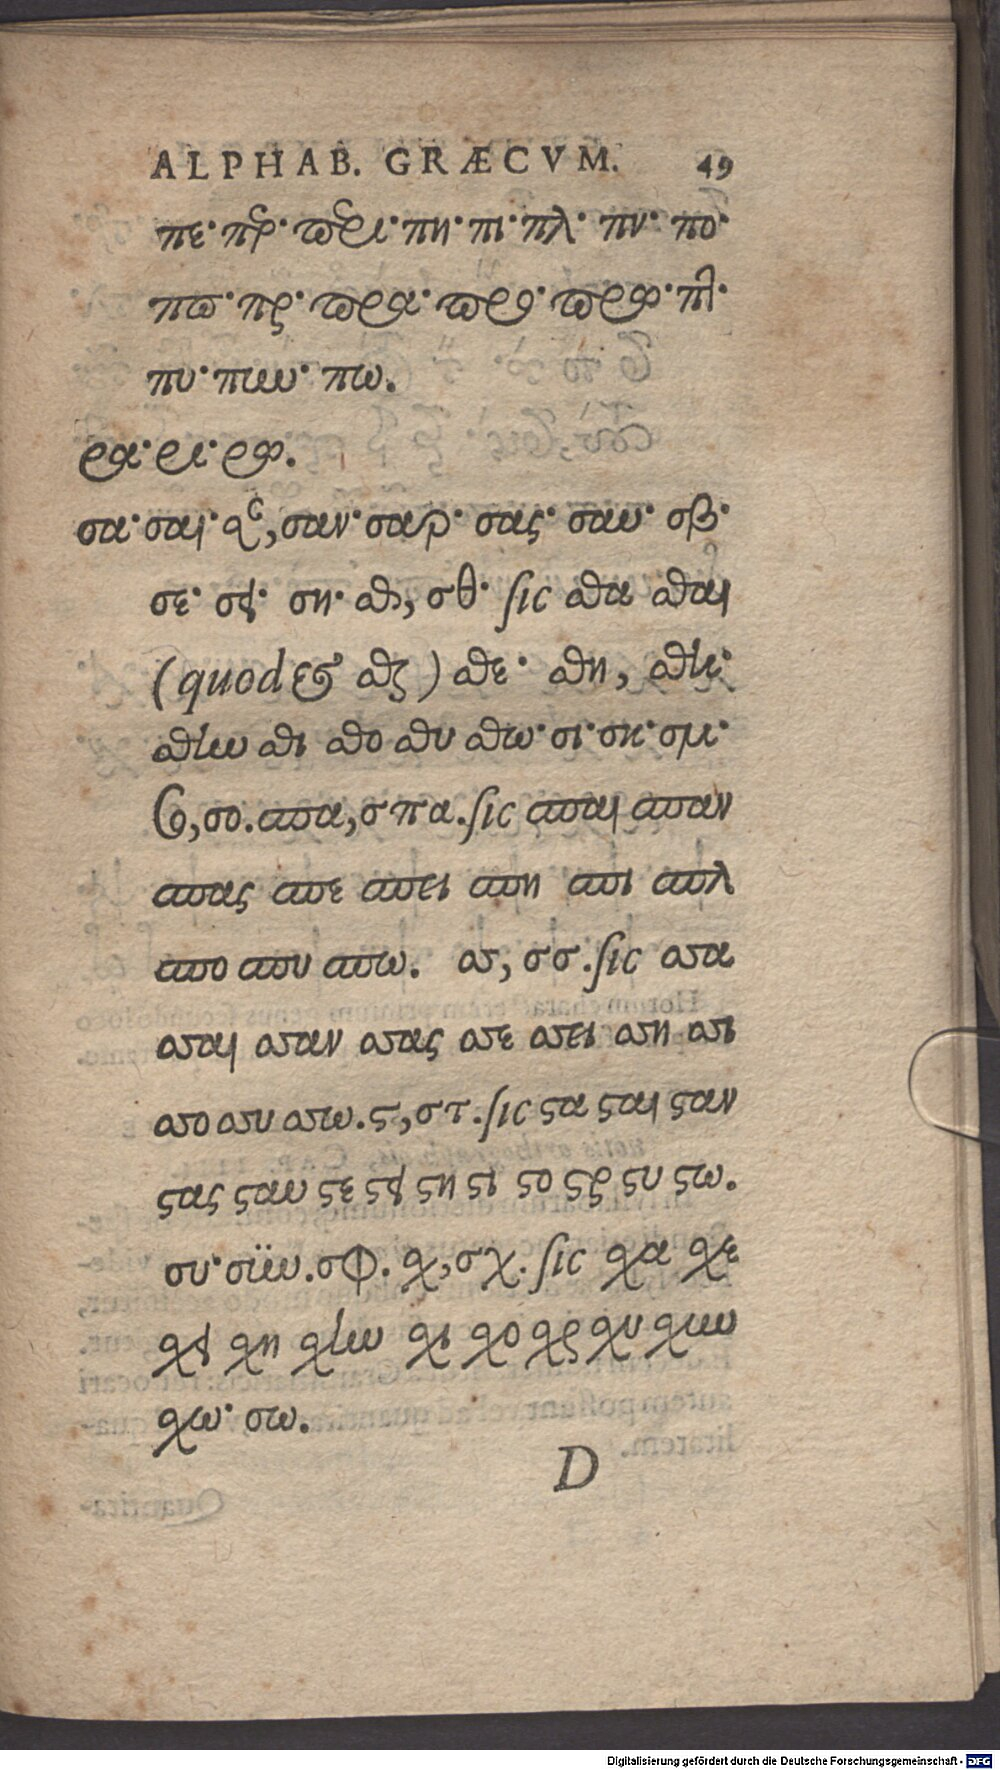 ALPHAB. GRÆCVM. 49
πε· περ· πρει· πη· πι· πλ· πν· πο·
ππ· προ· πρα· πρω· πτ·
πυ· πιυ· πω.
ρα· ρι· ρω.
σα· σαι· σαν· σαρ· σας· σαυ· σβ·
σε· σει· ση· σθ, σθ· ſic σθα σθαι
(quod & σθς) σθε· σθη, σθην·
σθην σθι σθο σθυ σθω· σι· σκ· σμ·
σο, σο. σπα, σπα. ſic σπαι σπαν
σπας σπε σπει σπη σπι σπλ
σπο σπυ σπω. σσ, σσ. ſic σσα
σσαι σσαν σσας σσε σσει σση σσι
σσο σσυ σσω. ϛ, στ. ſic ϛα ϛαι ϛαν
ϛας ϛαυ ϛε ϛει ϛη ϛι ϛο ϛρ ϛυ ϛω.
συ· σϋν. σφ. σχ, σχ. ſic σχα σχε
σχει σχη σχην σχι σχο σχρ σχυ
σχω· σω.
D
Digitalisierung gefördert durch die Deutsche Forschungsgemeinschaft - DFG